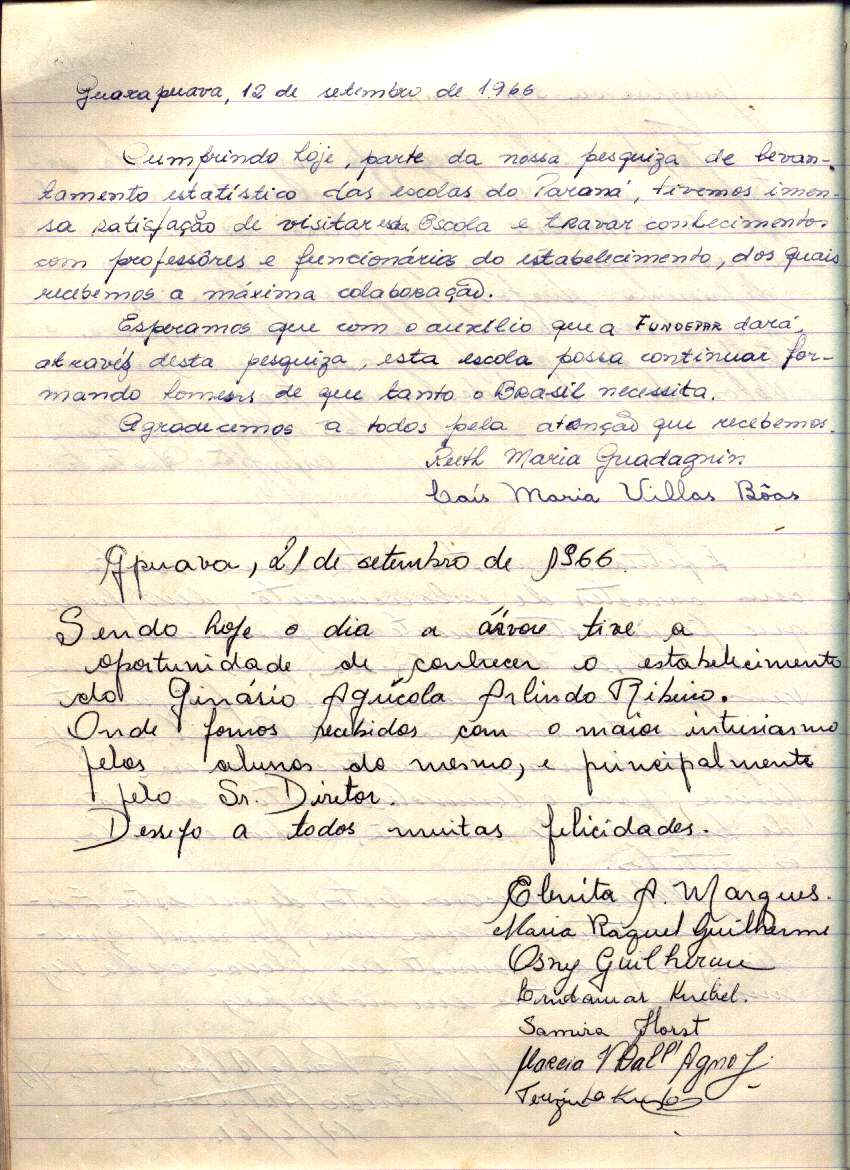 Guarapuava, 12 de setembro de 1966
Cumprindo hoje, parte da nossa pesquiza de levan-
tamento estatístico das escolas do Paraná, tivemos imen-
sa satisfação de visitar esta Escola e travar conhecimentos
com professôres e funcionários do estabelecimento, dos quais
recebemos a máxima colaboração.
Esperamos que com o auxílio que a FUNDEPAR dará
através desta pesquiza, esta escola possa continuar for-
mando homens de que tanto o Brasil necessita.
Agradecemos a todos pela atenção que recebemos.
Ruth Maria Guadagnin
Laís Maria Villas Bôas
Gpuava, 21 de setembro de 1966
Sendo hoje o dia a árvore tive a
oportunidade de conhecer o estabelecimento
do Ginásio Agrícola Arlindo Ribeiro.
Onde fomos recebidos com o maior intusiasmo
pelos alunos do mesmo, e principalmente
pelo Sr. Diretor.
Dessejo a todos muitas felicidades.
Elenita A. Marques.
Maria Raquel Guilherme
Osny Guilherme
Knebel.
Samira Horst
Dall'Agnol